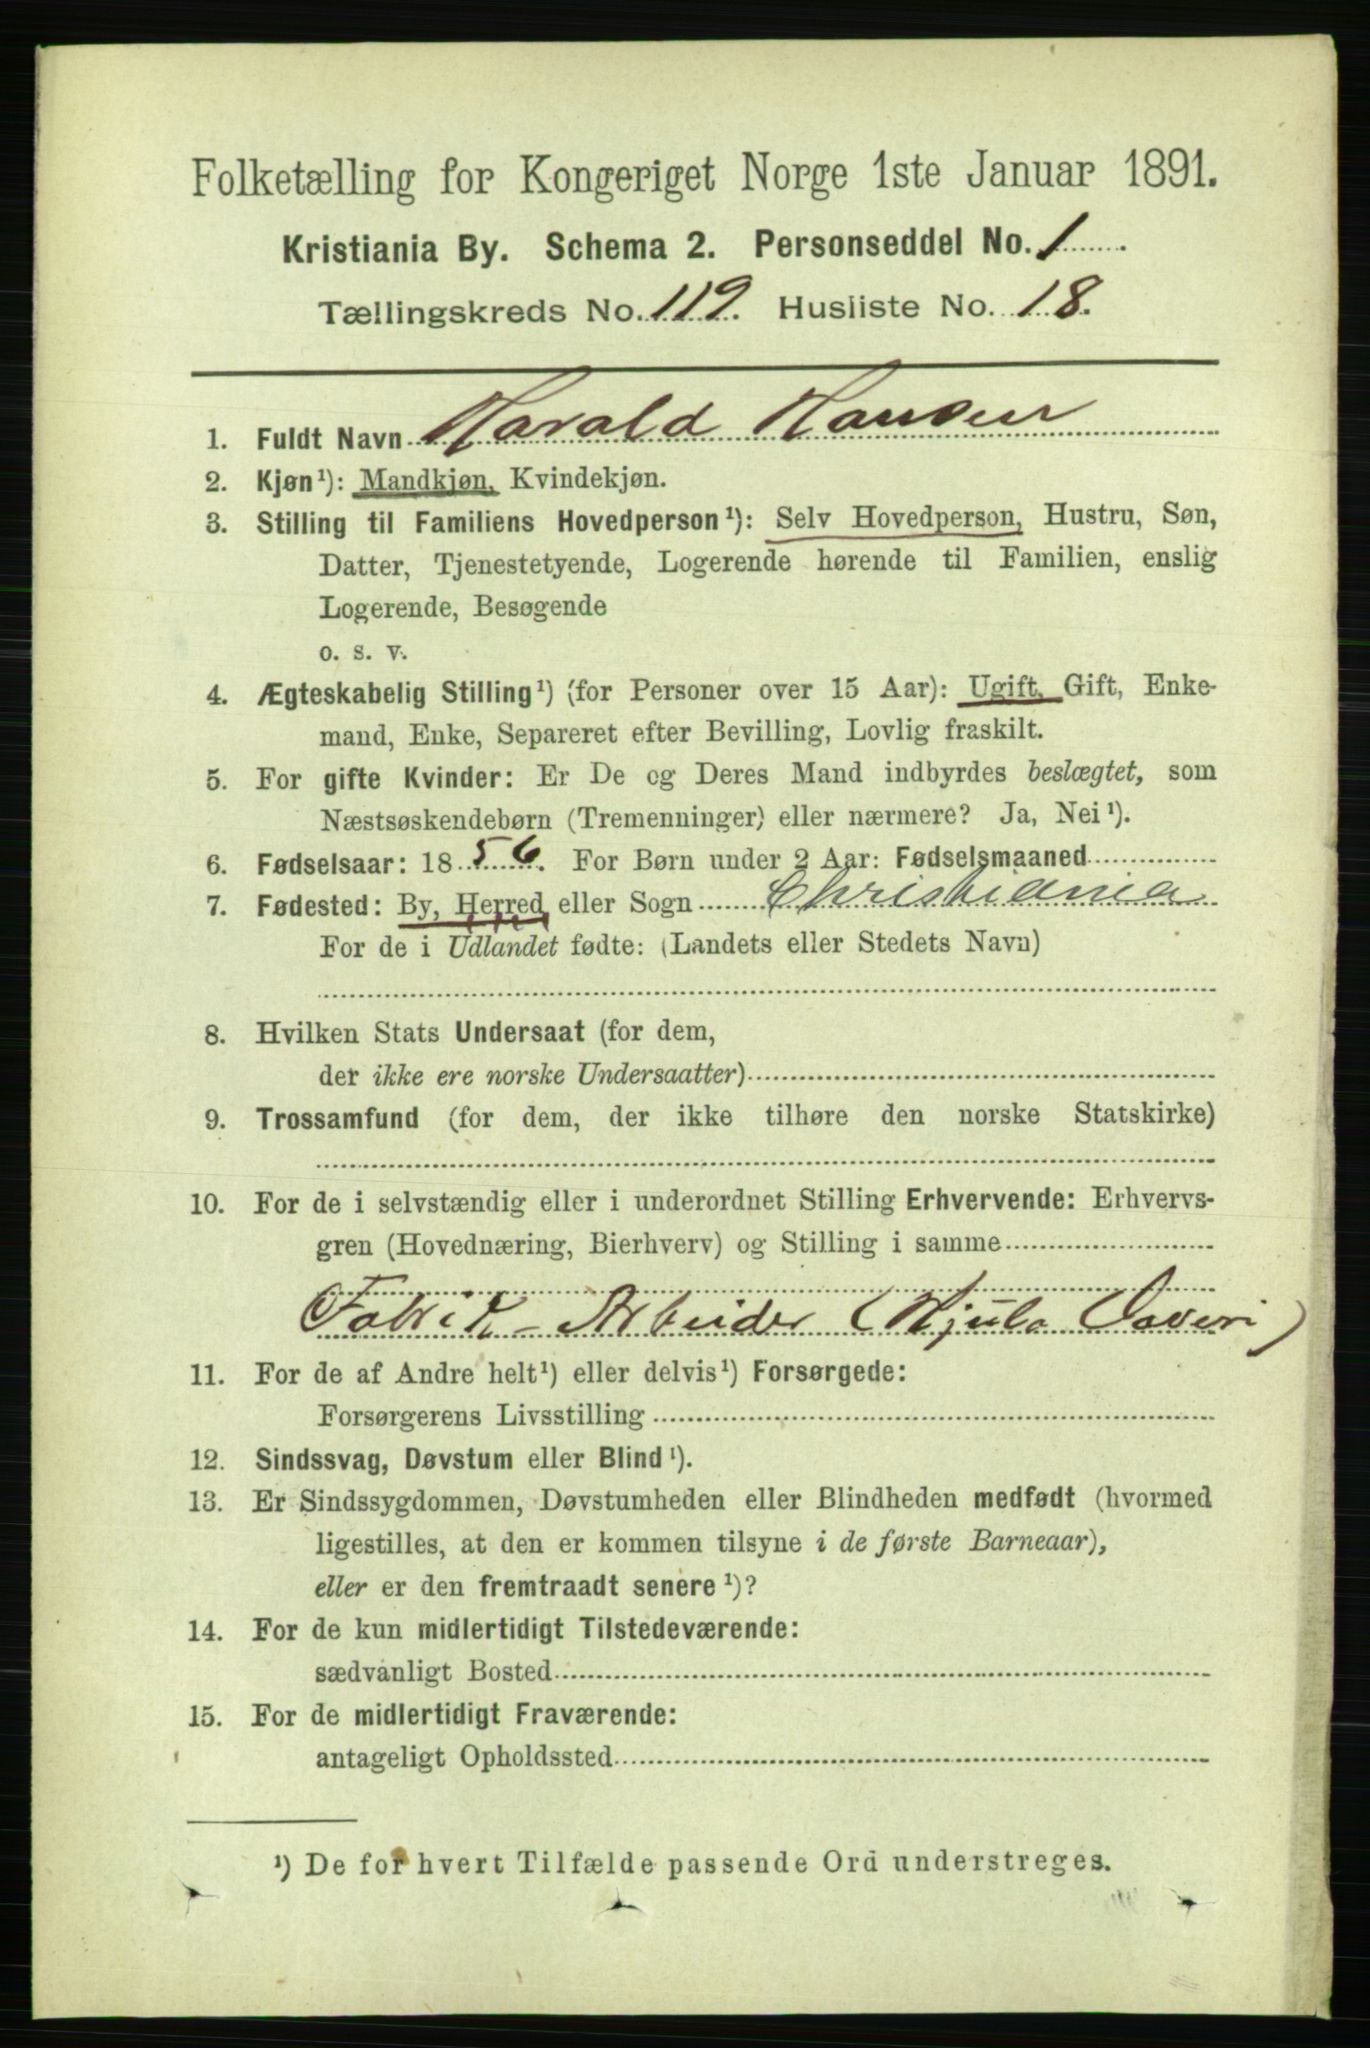 Folketælling for Kongeriget Norge 1ste Januar 1891.
Kristiania By. Schema 2. Personseddel No. 1
Tællingskreds No. 119. Husliste No. 18.
1. Fuldt Navn Harald Hansen
2. Kjøn¹): Mandkjøn, Kvindekjøn.
3. Stilling til Familiens Hovedperson¹): Selv Hovedperson, Hustru, Søn,
Datter, Tjenestetyende, Logerende hørende til Familien, enslig
Logerende, Besøgende
o. s. v.
4. Ægteskabelig Stilling¹) (for Personer over 15 Aar): Ugift, Gift, Enke-
mand, Enke, Separeret efter Bevilling, Lovlig fraskilt.
5. For gifte Kvinder: Er De og Deres Mand indbyrdes beslægtet, som
Næstsøskendebørn (Tremenninger) eller nærmere? Ja, Nei¹).
6. Fødselsaar: 1856. For Børn under 2 Aar: Fødselsmaaned
7. Fødested: By, Herred, eller Sogn Christiania
For de i Udlandet fødte: (Landets eller Stedets Navn)
8. Hvilken Stats Undersaat (for dem,
der ikke ere norske Undersaatter)
9. Trossamfund (for dem, der ikke tilhøre den norske Statskirke)
10. For de i selvstændig eller i underordnet Stilling Erhvervende: Erhvervs-
gren (Hovednæring, Bierhverv) og Stilling i samme
Fabrik-Arbeider (Hjula Væveri)
11. For de af Andre helt¹) eller delvis¹) Forsørgede:
Forsørgerens Livsstilling
12. Sindssvag, Døvstum eller Blind¹).
13. Er Sindssygdommen, Døvstumheden eller Blindheden medfødt (hvormed
ligestilles, at den er kommen tilsyne i de første Barneaar),
eller er den fremtraadt senere¹)?
14. For de kun midlertidigt Tilstedeværende:
sædvanligt Bosted
15. For de midlertidigt Fraværende:
antageligt Opholdssted
¹) De for hvert Tilfælde passende Ord understreges.